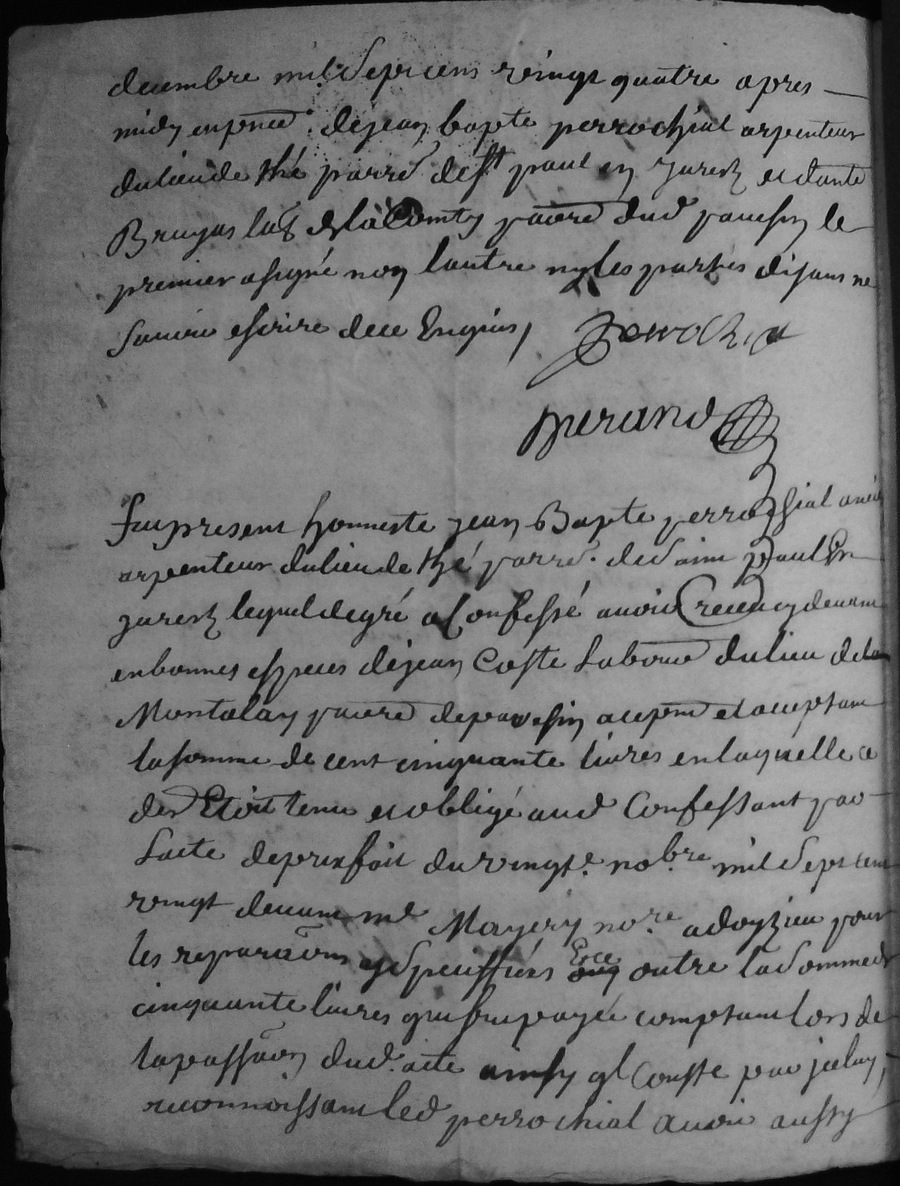 decembre mil sept cens vingt quatre apres
midy en pnce de jean bapte perrochial arpenteur
du lieu de thé parre de st paul en jarest et dante
Bruyas labr de la Comty parre dud pavesin le
premier asigné non lautre ny les parties disans ne
savoir escrire de ce Enquis,
perrochial
Berand
Fut present honneste jean Bapte perrochial
arpenteur du lieu de thé parre. de saint paul En
jarest lequel de gré a Confessé avoir receu cy devant
en bonnes especes de jean Coste laboure du lieu de
Montalay parre de pavesin a cepnt et acceptant
la somme de cent cinquante livres en laquelle
der Etoit tenu et obligé aud Confessant par
lacte de prixfait du vingte. nobre mil sept cent
vingt devant me Mayery nore a doyzieu pour
les reparaons y speciffiées Ece outre la somme de
cinquante livres qui fut payée comptant lors de
la passaon dud. acte ainsy ql Conste par jceluy,
reconnoissant led perrochial avoir aussy